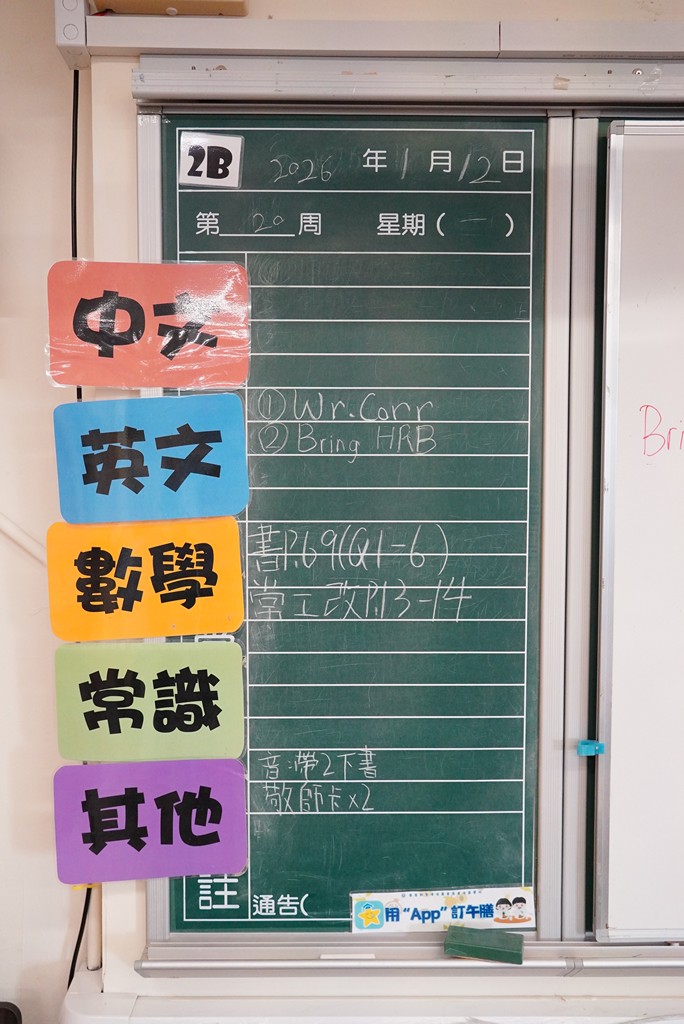 2B 2026 年 1 月 12 日
第 20 周 星期 ( 一 )
中文
英文
① Wr. Corr
② Bring HRB
數學
書P.69(Q1-6)
常工改P.13-14
常識
音:帶2下書
敬師卡x2
其他
註
通告(
用 “App” 訂午膳
Bri